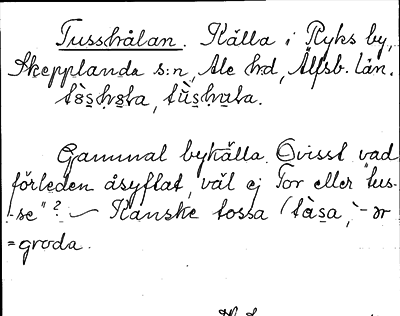 Tusskålan. Källa i Ryks by,
Skepplanda s:n, Ale hd, Älfsb. län.
Gammal bykälla. Ovisst vad
förleden åsyftat, väl ej Tor eller "tus-
-se"? — Kanske tossa (tåsa, -ər
=groda.